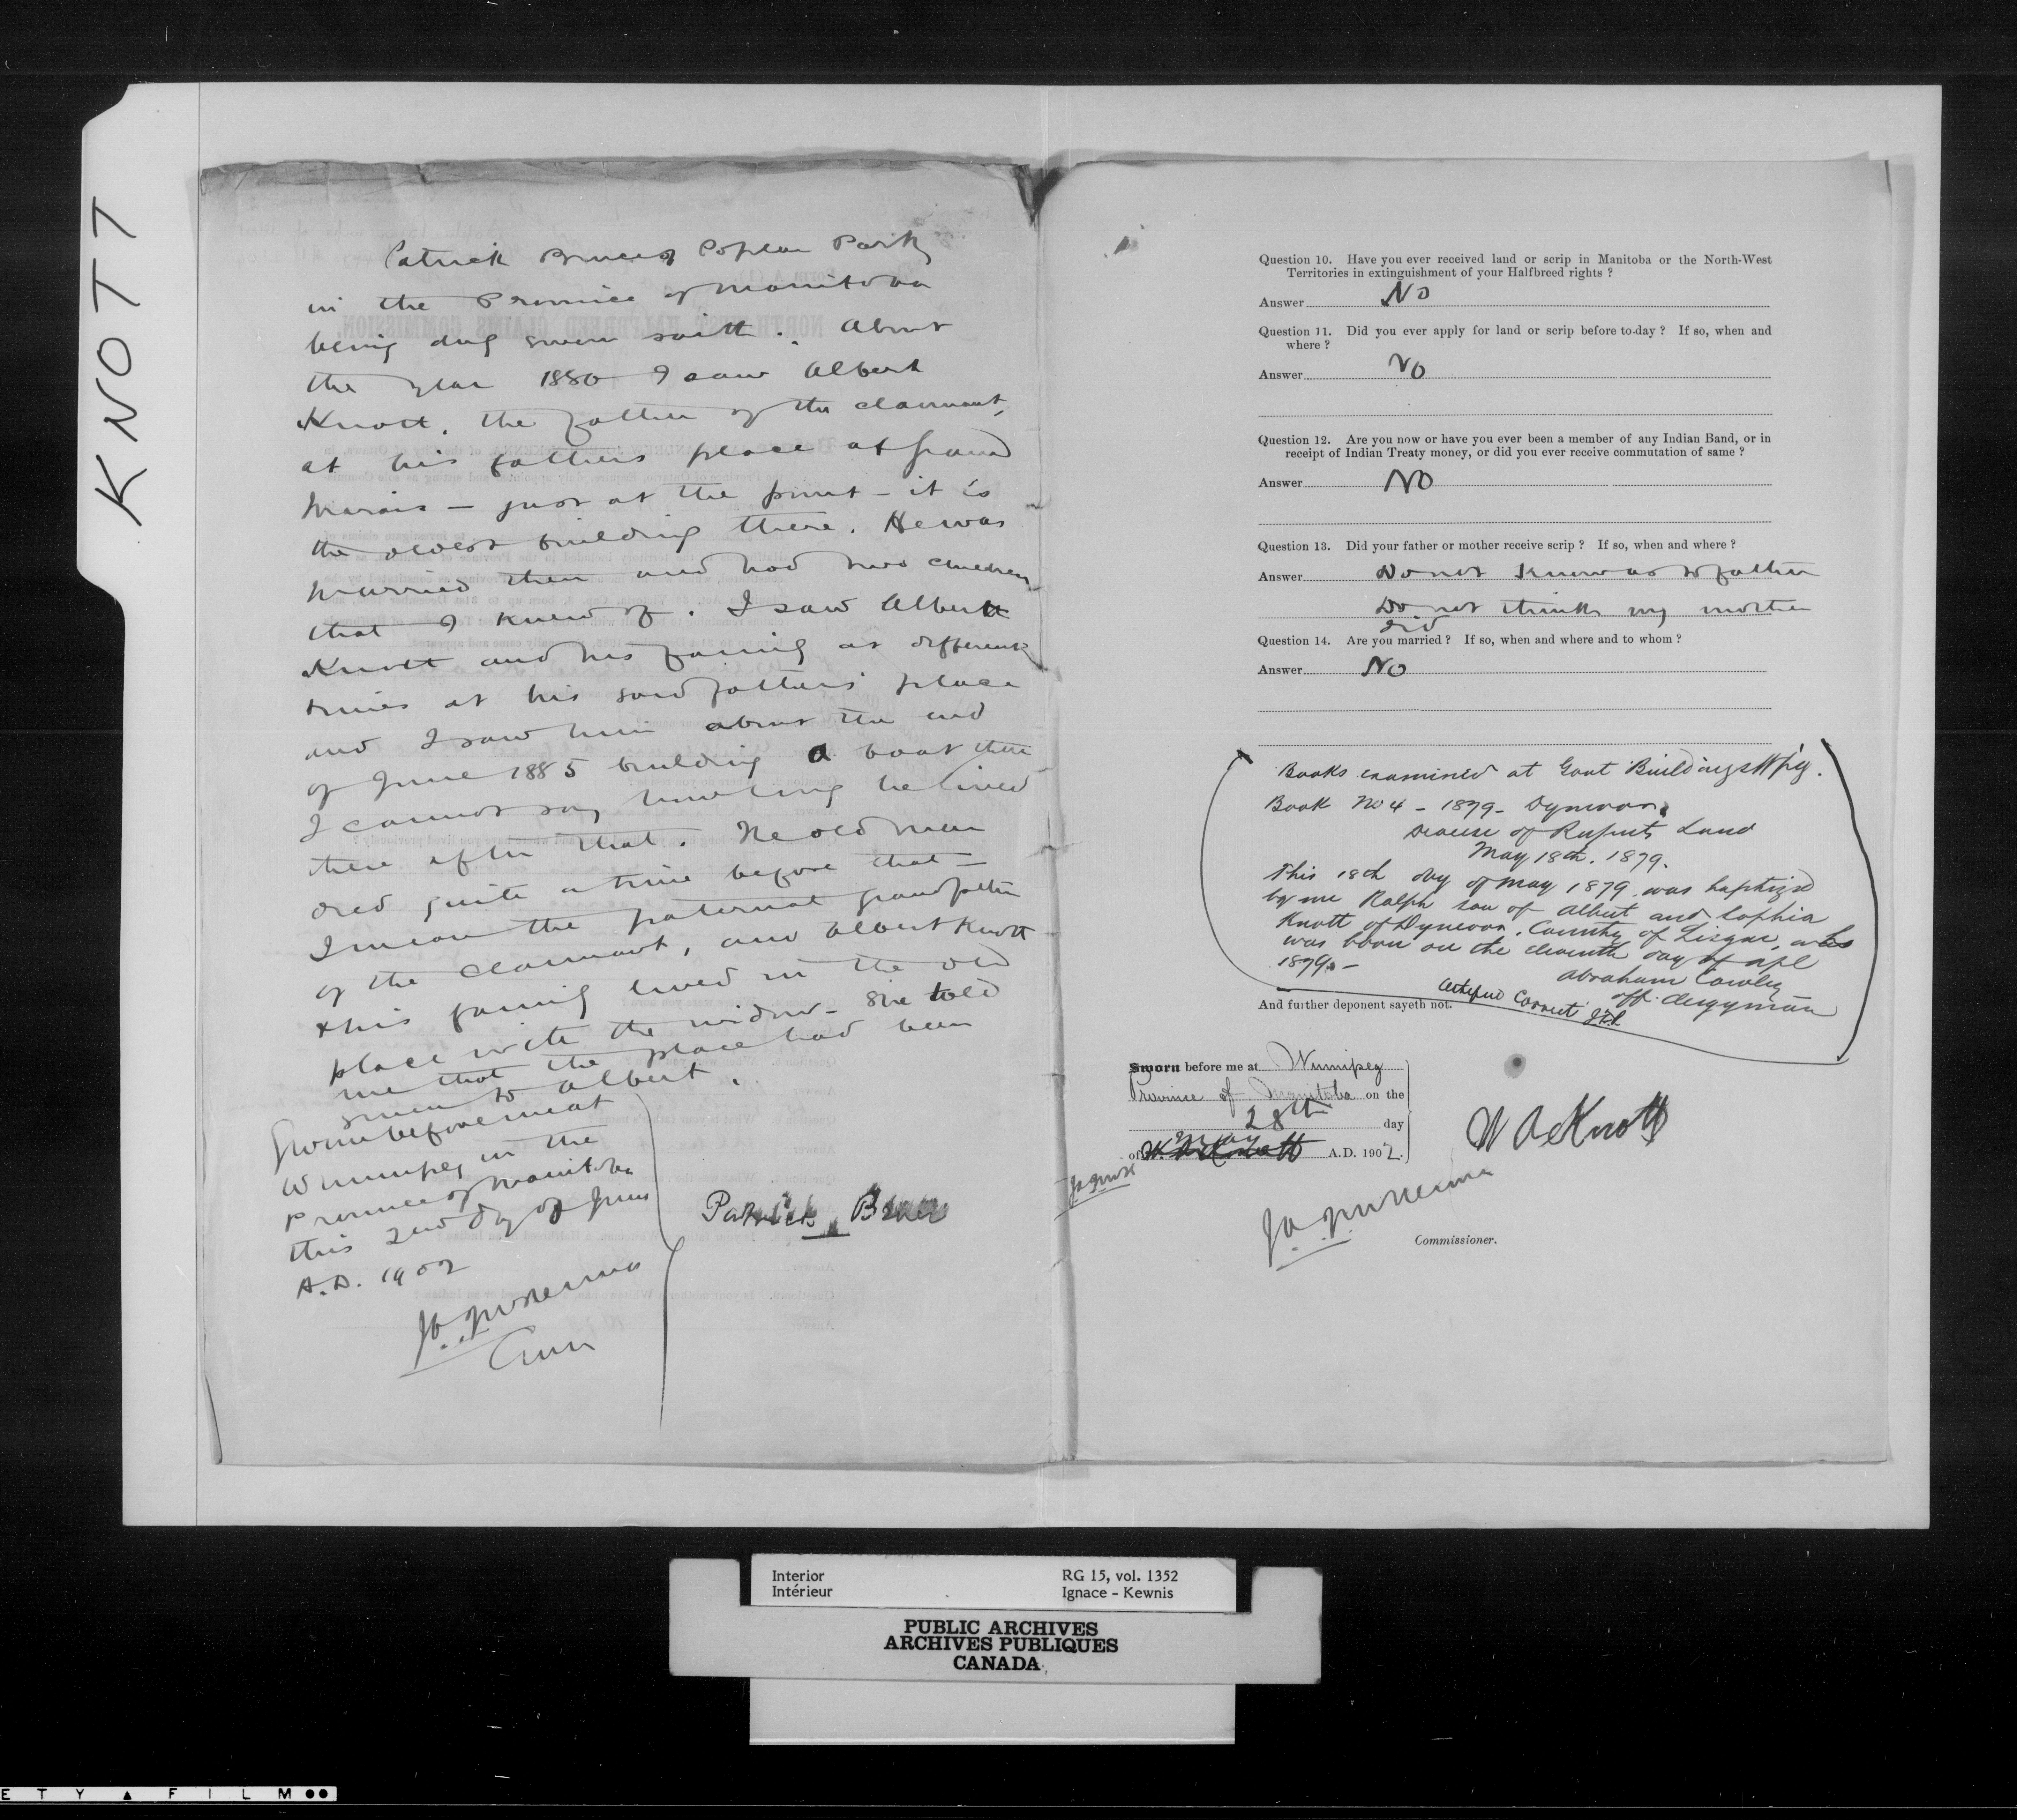 KNOTT
Patrick Bruce of Poplar Park
in the Province of Manitoba
being duly sworn saith. About
the year 1880 I saw Albert
Knott, the father of the claimant,
at his fathers place at Grand
Marais — just at the point — it is
the oldest building there. He was
married then and had two children
that I knew of. I saw Albert
Knott and his family at different
times at his said fathers' place
and I saw him about the end
of June 1885 building a boat there
I cannot say how long he lived
there after that. The old man
died quite a time before that —
I mean the paternal grandfather
of the claimant, and Albert Knott
& his family lived in the old
place with the widow — she told
me that the place had been
given to Albert.
Sworn before me at
Winnipeg in the
Province of Manitoba
this 2nd day of June
A.D. 1902
Patrick Bruce
Question 10. Have you ever received land or scrip in Manitoba or the North-West
Territories in extinguishment of your Halfbreed rights ?
Answer No
Question 11. Did you ever apply for land or scrip before to-day ? If so, when and
where ?
Answer No
Question 12. Are you now or have you ever been a member of any Indian Band, or in
receipt of Indian Treaty money, or did you ever receive commutation of same ?
Answer No
Question 13. Did your father or mother receive scrip ? If so, when and where ?
Answer Do not know as to father
Do not think my mother
did
Question 14. Are you married ? If so, when and where and to whom ?
Answer No
Books examined at Govt Buildings Wpg.
Book No 4 - 1879 - Dynevor
Diocese of Ruperts Land
May 18th. 1879.
This 18th day of May 1879 was baptized
by me Ralph son of Albert and Sophia
Knott of Dynevor, County of Lisgar, who
was born on the eleventh day of Apl
1879. —
Abraham Cowley
off. clergyman
Certified Correct
And further deponent sayeth not.
Sworn before me at Winnipeg
Province of Manitoba on the
28th day
of May A.D. 1902.
W A Knott
Commissioner.
Interior
Intérieur
RG 15, vol. 1352
Ignace - Kewnis
PUBLIC ARCHIVES
ARCHIVES PUBLIQUES
CANADA
E T Y ▲ F I L M ●●